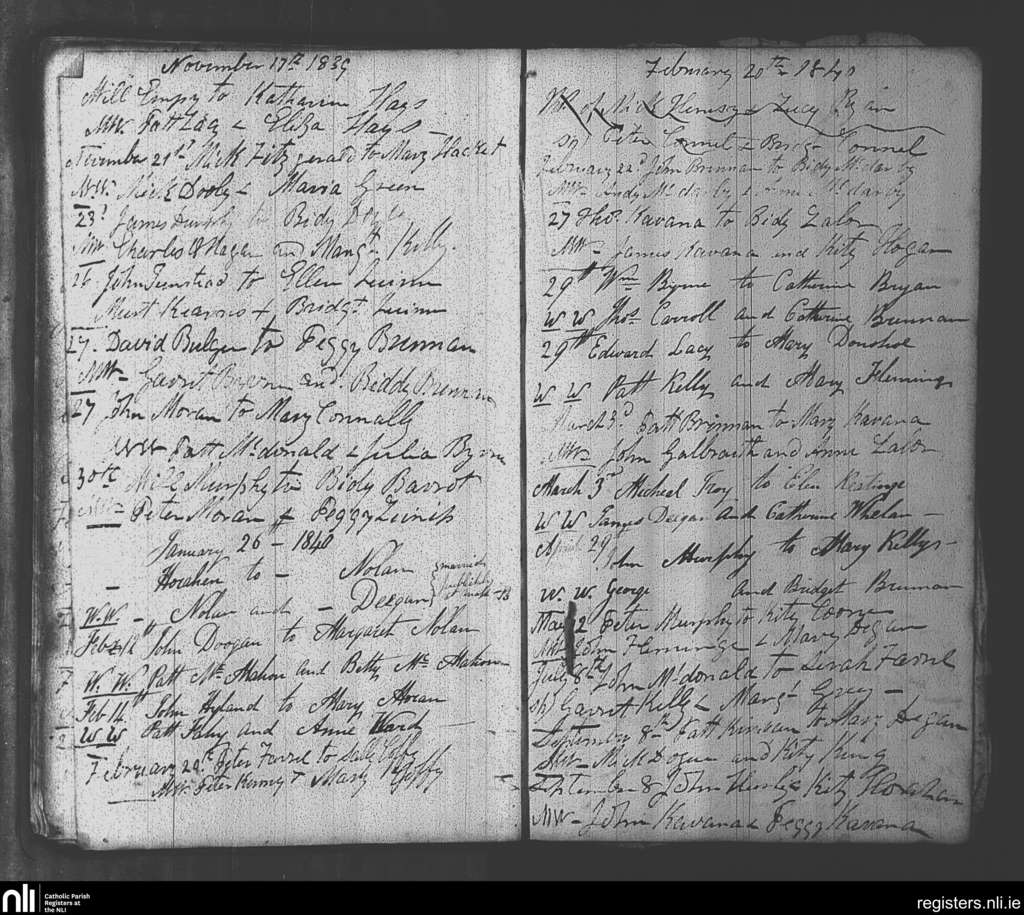 November 17th 1839
Mill Empy to Katharin Hays
MW. Patt Lacy & Eliza Hays
November 21st Mick Fitzgerald to Mary Hacket
MW. Mick Dooly & Maria Green
23d James Murphy to Bidy
MW. Charles OHagan and Margt Kelly
26 John to Ellen Quinn
Murt Kearns & Bridgt Quinn
27. David Bulger to Peggy Brennan
MW- Garrit Byrne and Biddy Brennan
27 John Moran to Mary Connally
WW Patt McDonald & Julia Byrne
30th Mick Murphy to Bidy Barrot
Peter Moran & Peggy
January 26 - 1840
- Horahen to - Nolan married
publickly
at mass
W.W. - Nolan and - Deegan
Feb 12th John Doogan to Margaret Nolan
W. W. Patt McMahon and Betty McMahon
Feb 14 John Hyland to Mary Horan
W W Patt Fahy and Anne Hardy
February 20th Peter Farrel to Sale
MW. Peter Kenny & Mary
February 20th 1840
of Mick & Lucy Ryan
Peter Connel & Bridgt Connel
February 22d John Brennan to Bidy McDarby
MW- Andy McDarby & McDarby
27 Thos Kavana to Bidy Lalor
MW- James Kavana and Kity Hogan
29th Wm Byrne to Catherine Bryan
W W Thos Carroll and Catherine Brennan
29th Edward Lacy to Mary Donohoe
W W Patt Kelly and Mary Fleming
March 3d Patt Brinnan to Mary Kavana
MW- John Galbraith and Anne Lalor
March 3rd Micheal Troy to Elen Keatinge
W W James Deegan and Catherine Whelan -
April 29 John Murphy to Mary Kellys -
W. W. George and Bridget Brennan
May 12 Peter Murphy to Kity Coone
MW John Fleminge & Mary Degan
July 8th John McDonald to Sarah Farrel
Garrit Kelly & Margt Grey -
September 8th Patt Kirwan to Mary Degan
MW- Mick Dogan and Kity King
September 8 John & Kity Horahan
MW- John Kavana & Peggy Kavana
nli
Catholic Parish
Registers at
the NLI
registers.nli.ie